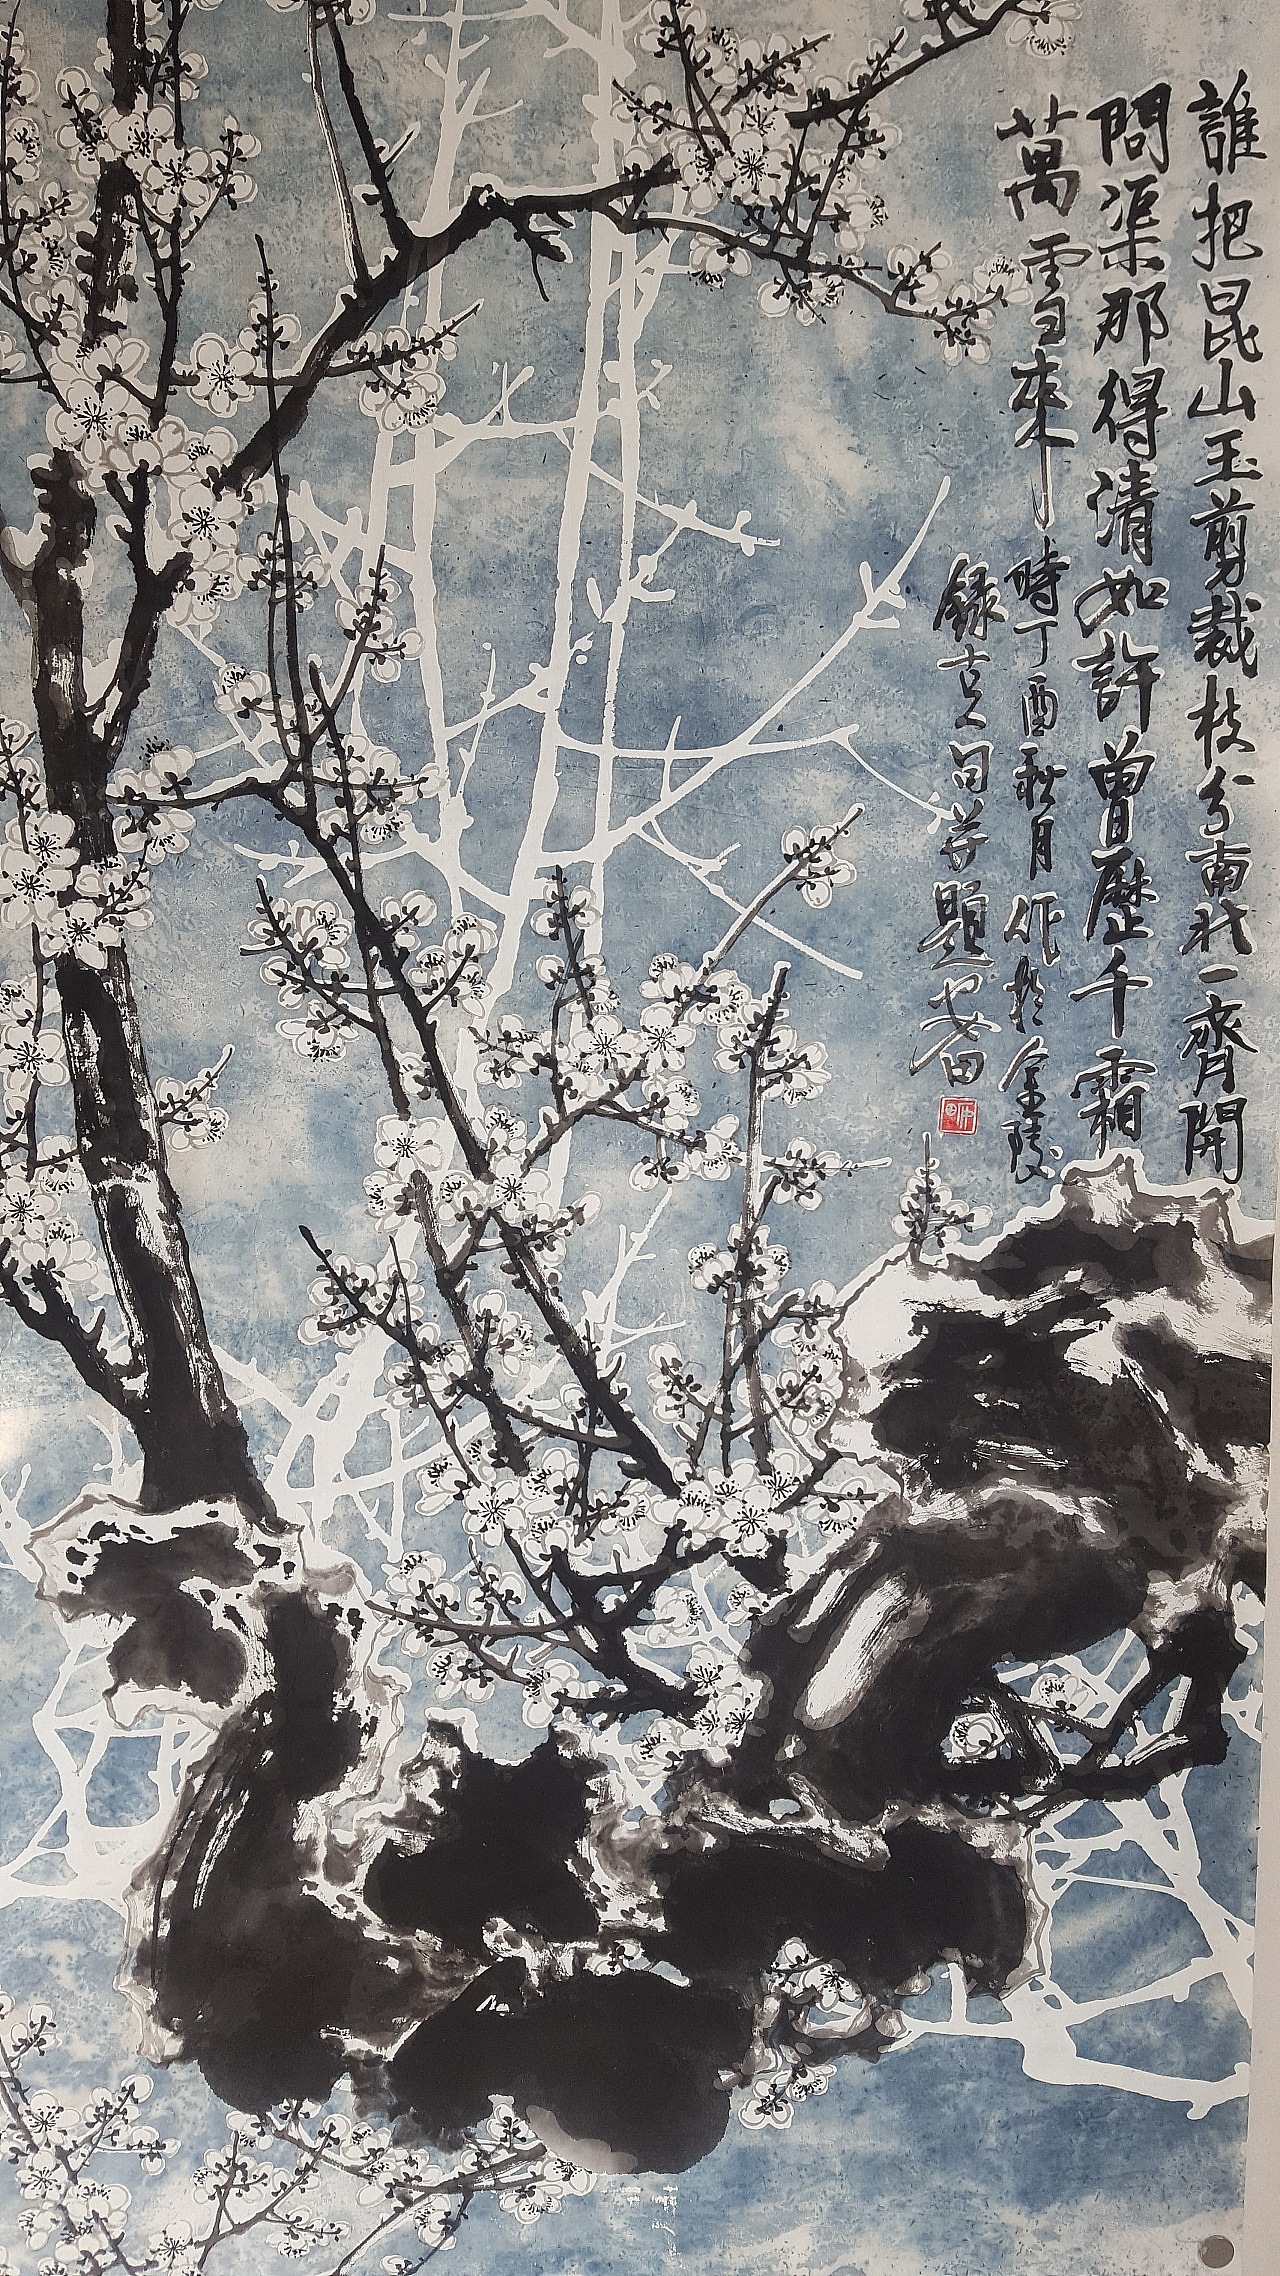 誰把昆山玉剪裁枝分南北一齊開
問渠那得清如許曾歷千霜
萬雪來 時丁酉秋月作於金陵
錄古人句并題 田